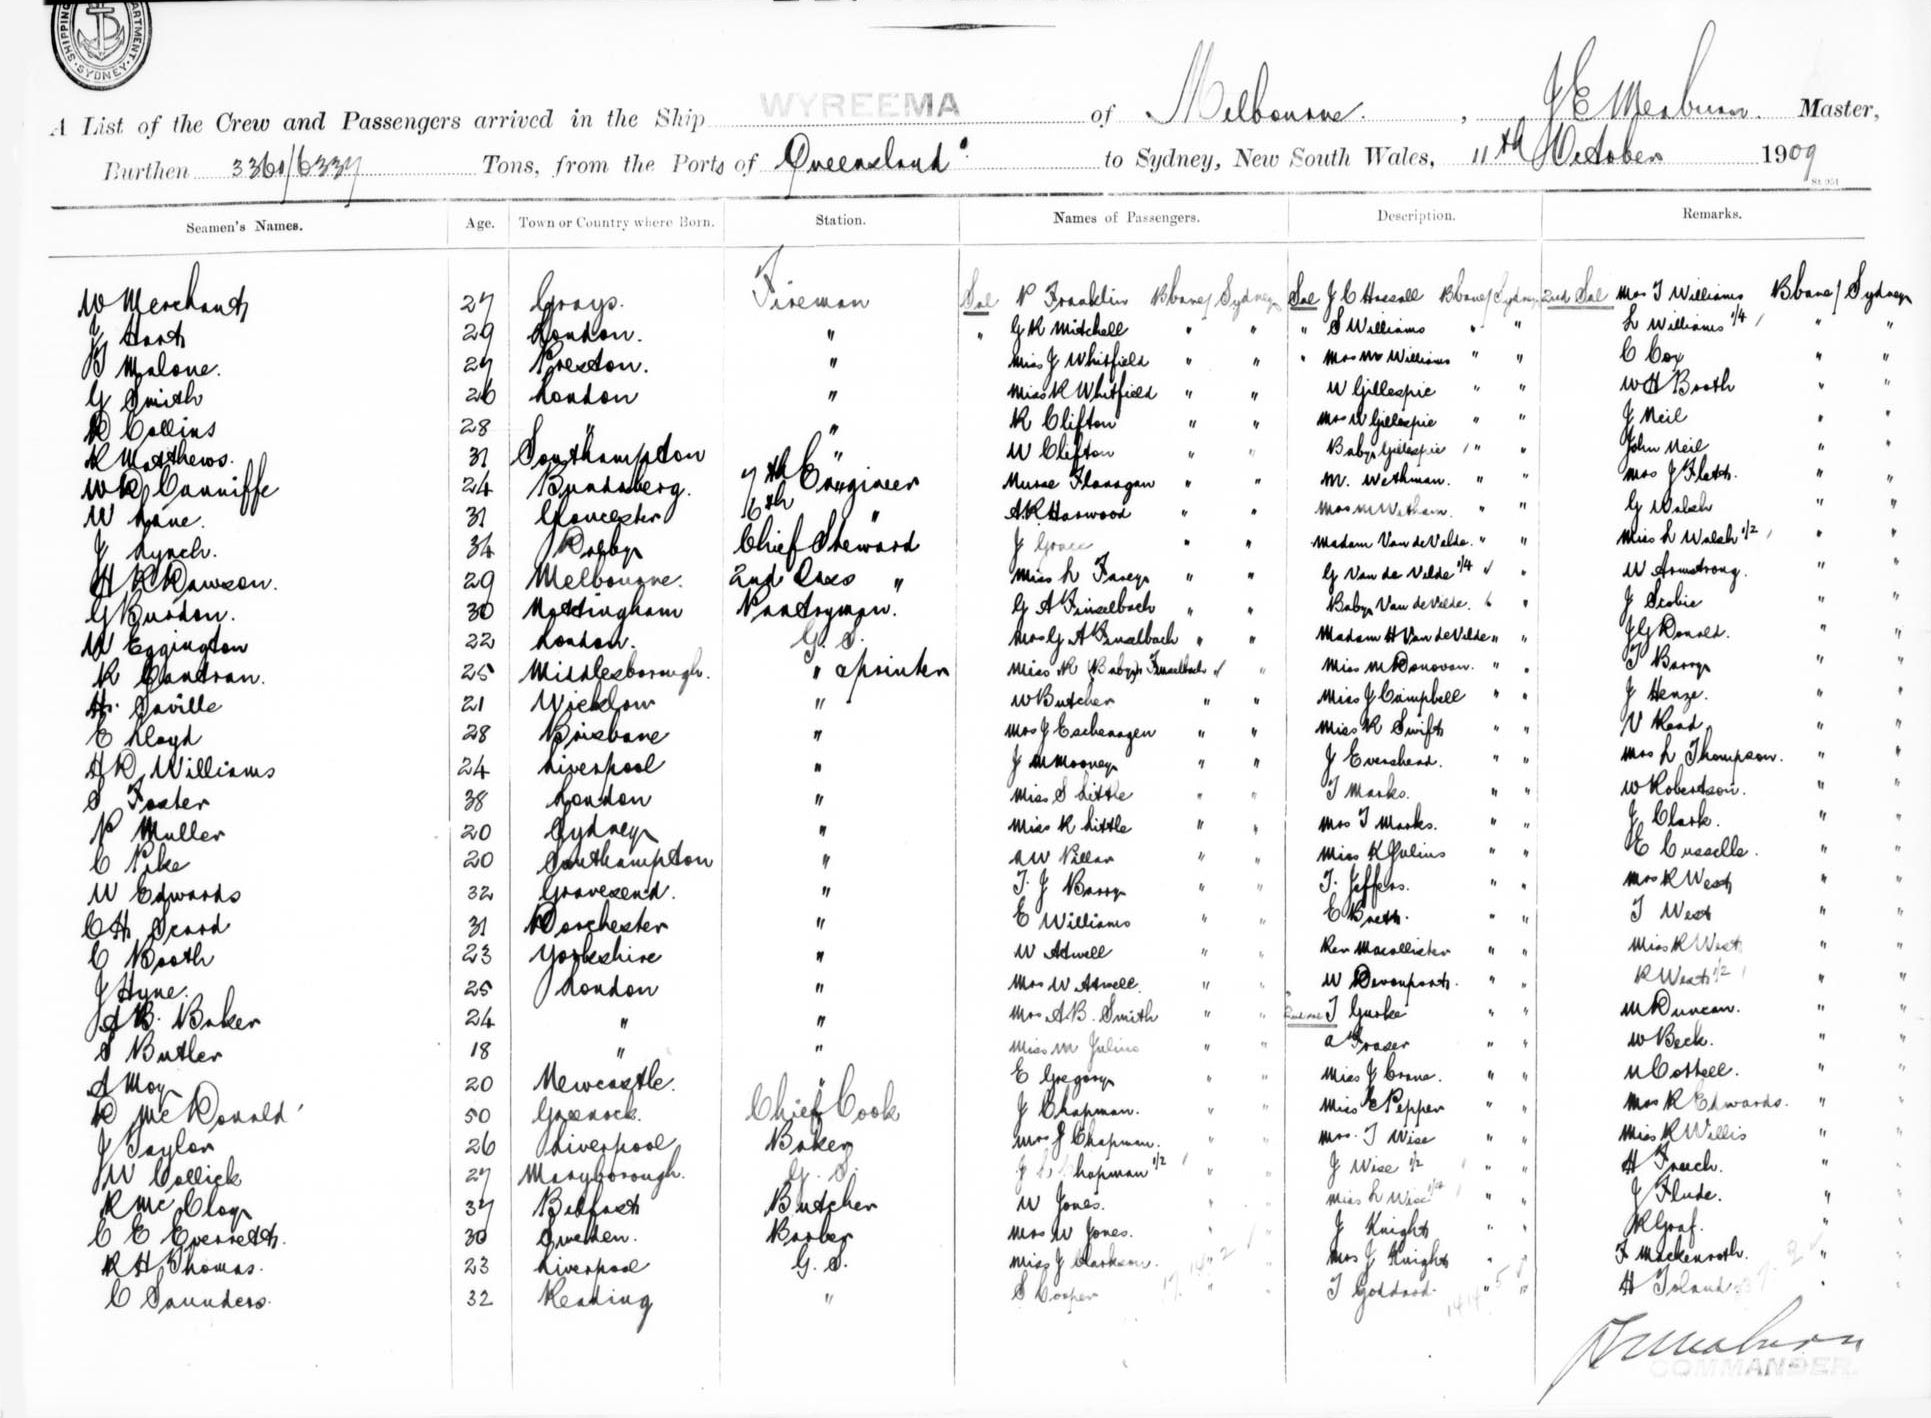 SHIPPING DEPARTMENT SYDNEY
A List of the Crew and Passengers arrived in the Ship WYREEMA of Melbourne, J E Meaburn Master,
Burthen 3360/6337 Tons, from the Ports of Queensland to Sydney, New South Wales, 11th October 1909
Seamen's Names. Age. Town or Country where Born. Station. Names of Passengers. Description. Remarks.
W Merchant 27 Grays. Fireman Sal P Franklin Bbane/Sydney Sal J C Hassall Bbane/Sydney 2nd Sal Mrs T Williams Bbane/Sydney
J Hart 29 London. " " G R Mitchell " " " S Williams " " L Williams 1/4 " "
Malone. 27 Preston. " Miss J Whitfield " " " Mrs Williams " " C Cox " "
G Smith 26 London " Miss R Whitfield " " W Gillespie " " W H Booth " "
D Collins 28 " " R Clifton " " Mrs W Gillespie " " J Neil " "
R Matthews. 31 Southampton " W Clifton " " Baby Gillespie " " John Neil " "
Canniffe 24 Bundaberg. 7th Engineer Nurse Flanagan " " M. Wethman. " " Mrs J " "
W Lane. 31 Gloucester 6th " A R Harwood " " Mrs M " " G Walsh " "
J Lynch. 34 Derby Chief Steward J Grace " " Madam Van de Velde. " " Miss L Walsh 1/2 " "
H R Dawson. 29 Melbourne. 2nd Class " Miss L Farey " " G Van de Velde 1/4 " W Armstrong. " "
G Burdon. 30 Nottingham Pantryman. G A Finselbach " " Baby Van de Velde. " J Scobie " "
W Eggington 22 London. G. S. Mrs G A Finselbach " " Madam H Van de Velde " " J G Donald. " "
R Condran. 25 Middlesborough. " & printer Miss R (Baby) Finselbach " Miss M Donovan. " " T Barry " "
H. Saville 21 Wicklow " W Butcher " " Miss J Campbell " " J Henze. " "
E Lloyd 28 Brisbane " Mrs J Eschenagen " " Miss R Swift " " V Read " "
H D Williams 24 Liverpool " J M Mooney " " J Evershead. " " Mrs L Thompson. " "
S Foster 38 London " Miss S Little " " T Marks. " " W Robertson. " "
P Muller 20 Sydney " Miss R Little " " Mrs T Marks. " " J Clark. " "
C Pike 20 Southampton " A W Pillar " " Miss K Julius " " E Cusselle. " "
W Edwards 32 Gravesend. " T. J Barry " " T. Jeffers. " " Mrs R West " "
C H Scard 31 Dorchester " E Williams " " E " " T West " "
C Booth 23 Yorkshire " W Atwell " " Rev Macallister " " Miss R West " "
J Hyne. 25 London " Mrs W Atwell. " " W Devonport. " " R West 1/2 " "
A B. Baker 24 " " Mrs A B. Smith " " 2nd Sal T Gurke " " M Duncan. " "
S Butler 18 " " Miss M Julius " " A Fraser " " W Beck. " "
A Moy 20 Newcastle. " E Gregory " " Miss J Crane. " " N Cottell. " "
D McDonald 50 Greenock. Chief Cook J Chapman. " " Miss E Pepper " " Mrs R Edwards. " "
J Taylor 26 Liverpool Baker Mrs J Chapman. " " Mrs. T Wise " " Miss R Willis " "
W Collick 27 Maryborough. G. S. J L Chapman 1/2 " " J Wise 1/2 " " H " "
R McCloy 37 Belfast Butcher W Jones. " " Miss L Wise 1/4 " " J Flude. " "
C E Everett. 30 Sweden. Barber Mrs W Jones. " " J Knight " " R Graf. " "
R H Thomas. 23 Liverpool G. S. Miss J Clarkson. " " Mrs J Knight " " F Mackenroth. " "
C Saunders. 32 Reading " S Cooper " " T Goddard. " " H Toland " "
J E Meaburn
COMMANDER.